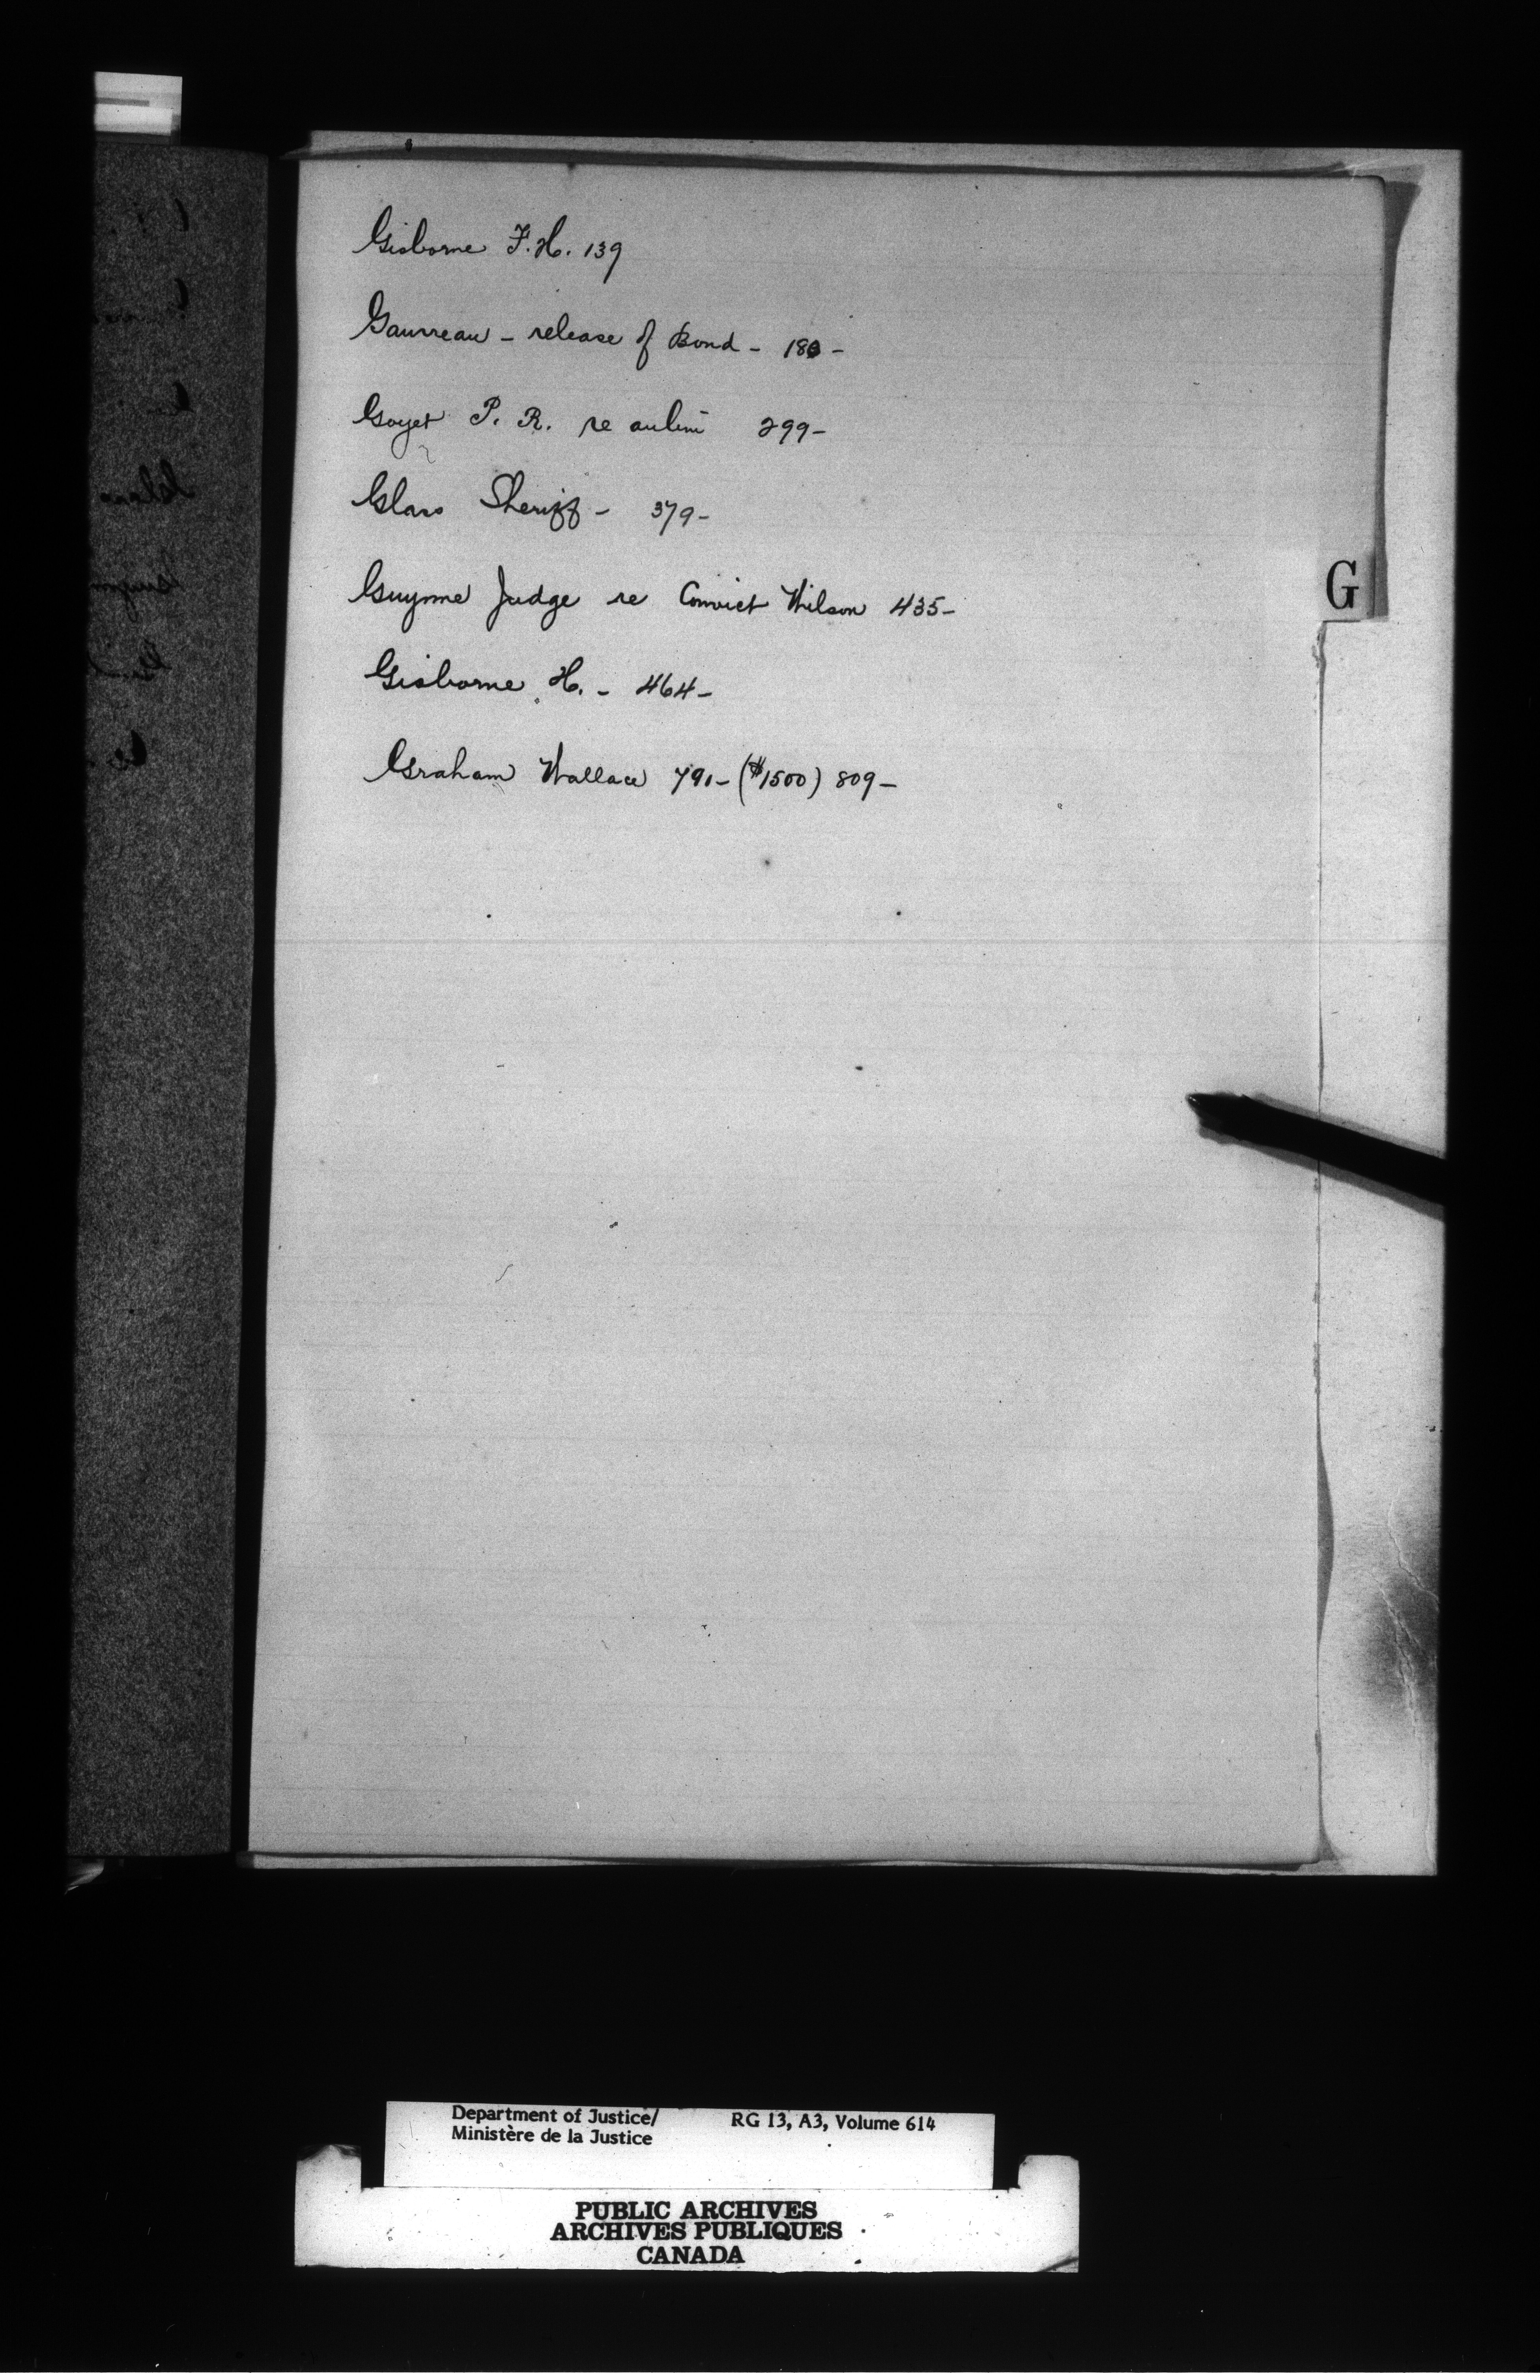 Gisborne F. H. 139
Gauvreau - release of Bond - 180 -
Goyet P. R. re aubin 299 -
Glass Sheriff - 379 -
Gwynne Judge re Convict Wilson 435 -
Gisborne H. - 464 -
Graham Wallace 791 - ($1500) 809 -
G
Department of Justice/ RG 13, A3, Volume 614
Ministère de la Justice
PUBLIC ARCHIVES
ARCHIVES PUBLIQUES
CANADA